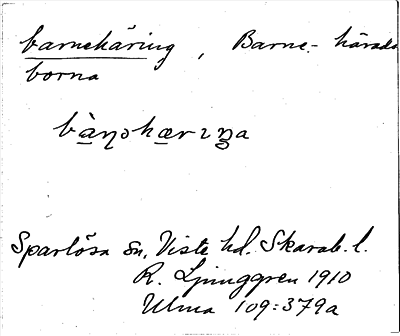 barnehäring, Barne-härads
borna
bàṉəhæ̱rıŋa
Sparlösa sn, Viste hd. Skarab. l.
R. Ljunggren 1910
Ulma 109:379a